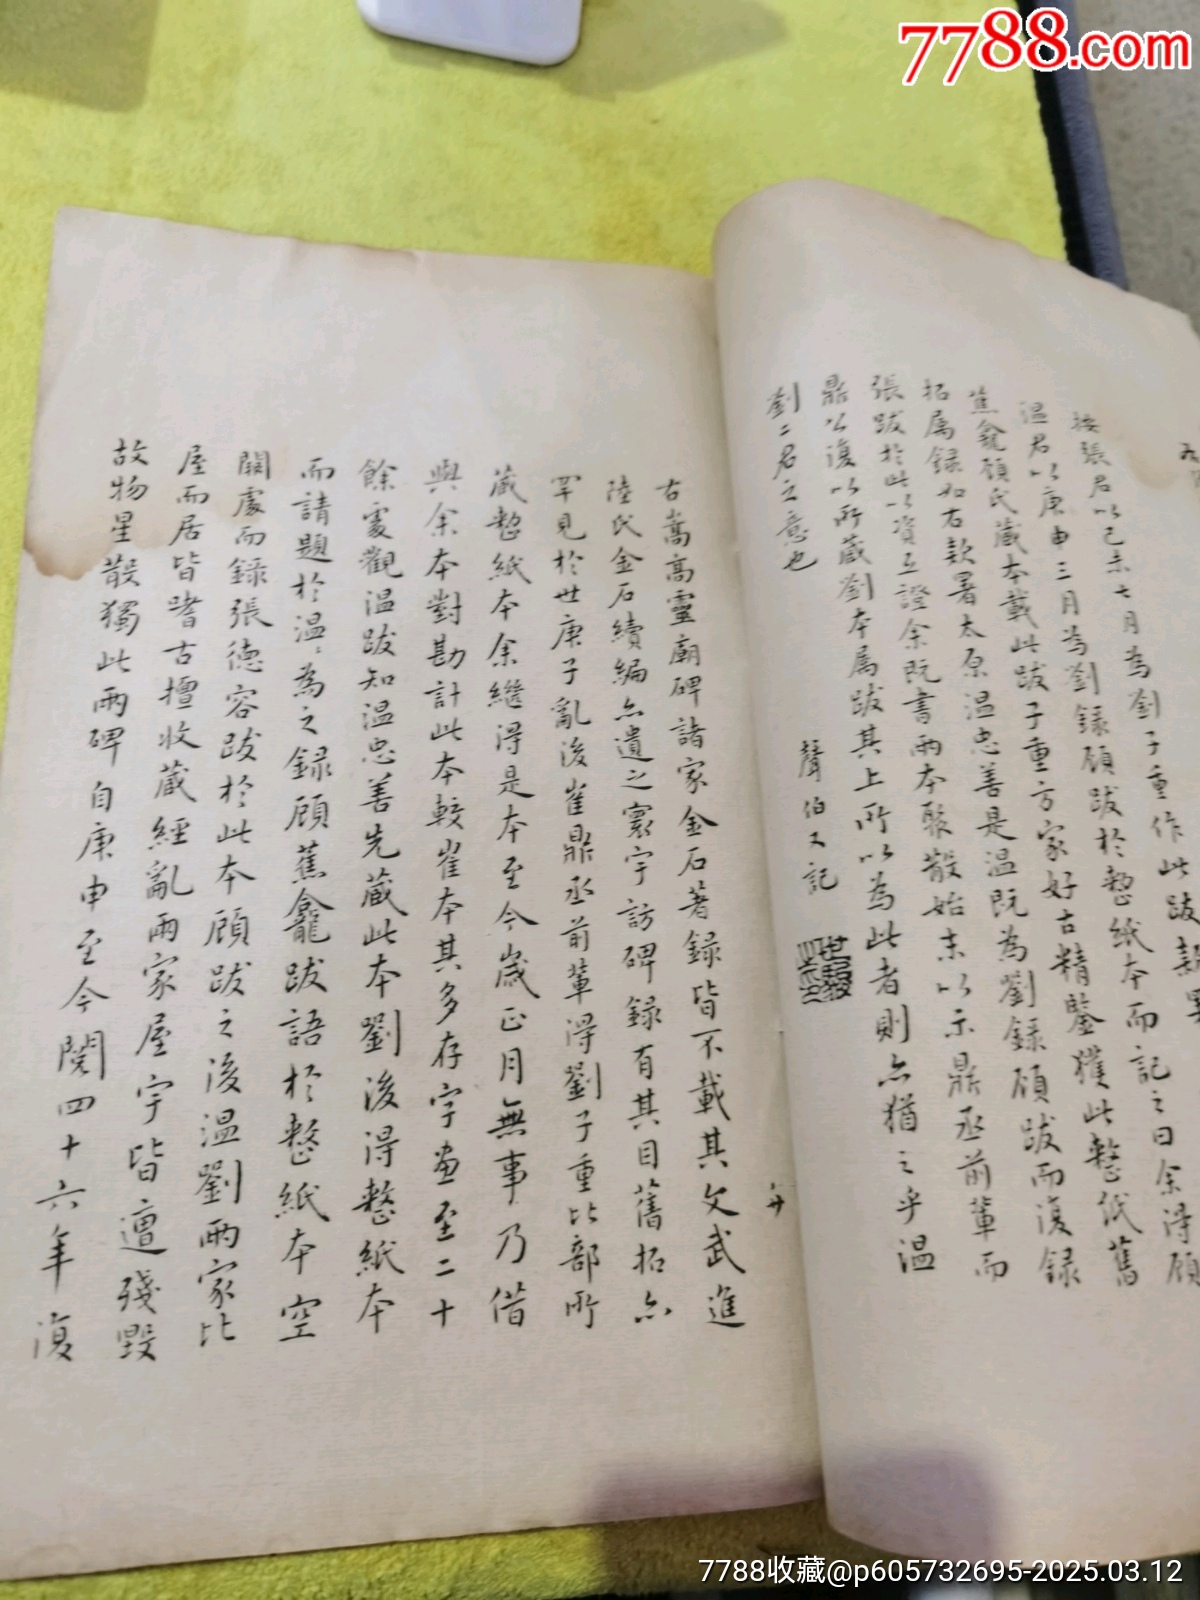 7788.com
按張君以己未七月為劉子重作此跋
溫君以庚申三月為劉錄顧跋於整紙本而記之曰余得顧
蕉龕顧氏藏本載此跋子重方家好古精鑒獲此整紙舊
拓属錄如右款署太原溫忠善是溫既為劉錄顧跋而復錄
張跋於此以資互證余既書兩本聚散始末以示鼎丞前輩而
鼎以復以所藏劉本属跋其上所以為此者則亦猶之乎溫
劉二君之意也
聲伯又記
古嵩高靈廟碑諸家金石著錄皆不載其文武進
陸氏金石續編亦遺之寰宇訪碑錄有其目舊拓亦
罕見於世庚子亂後崔鼎丞前輩得劉子重比部所
藏整紙本余繼得是本至今歲正月無事乃借
與余本對勘計此本較崔本其多存字畫至二十
餘處觀溫跋知溫忠善先藏此本劉後得整紙本
而請題於溫〻為之錄顧蕉龕跋語於整紙本空
闕處而錄張德容跋於此本顧跋之後溫劉兩家比
屋而居皆嗜古擅收藏經亂兩家屋宇皆遭殘毀
故物星散獨此兩碑自庚申至今閱四十六年復
7788收藏@p605732695-2025.03.12